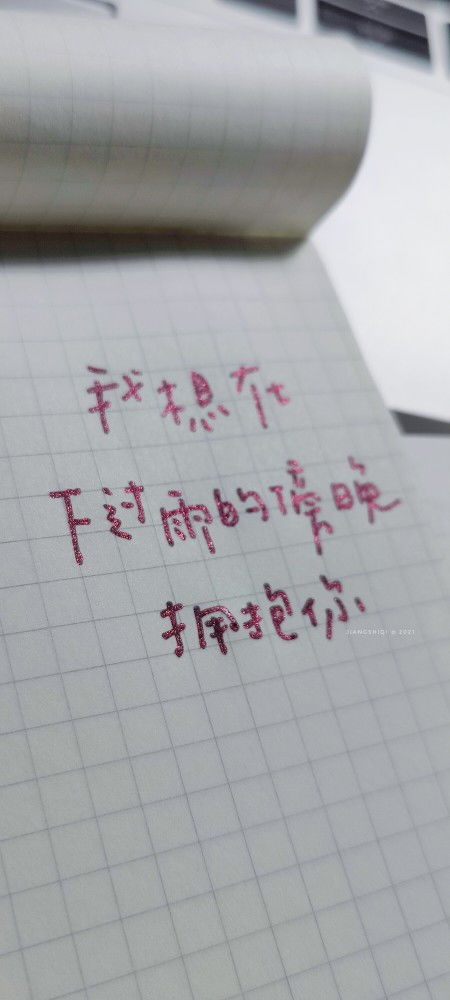 我想在
下过雨的傍晚
拥抱你
JIANGSHIQI @ 2021